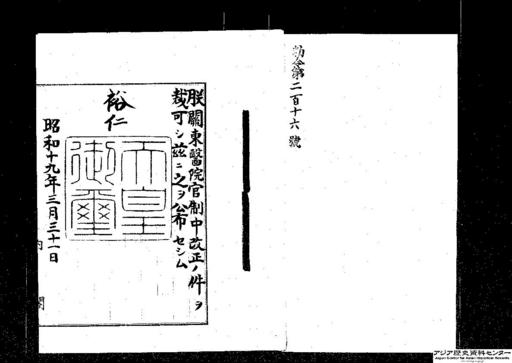 勅令第二百十六號
朕關東醫院官制中改正ノ件ヲ
裁可シ茲ニ之ヲ公布セシム
裕仁
天皇
御璽
昭和十九年三月三十一日
内閣
アジア歴史資料センター
Japan Center for Asian Historical Records